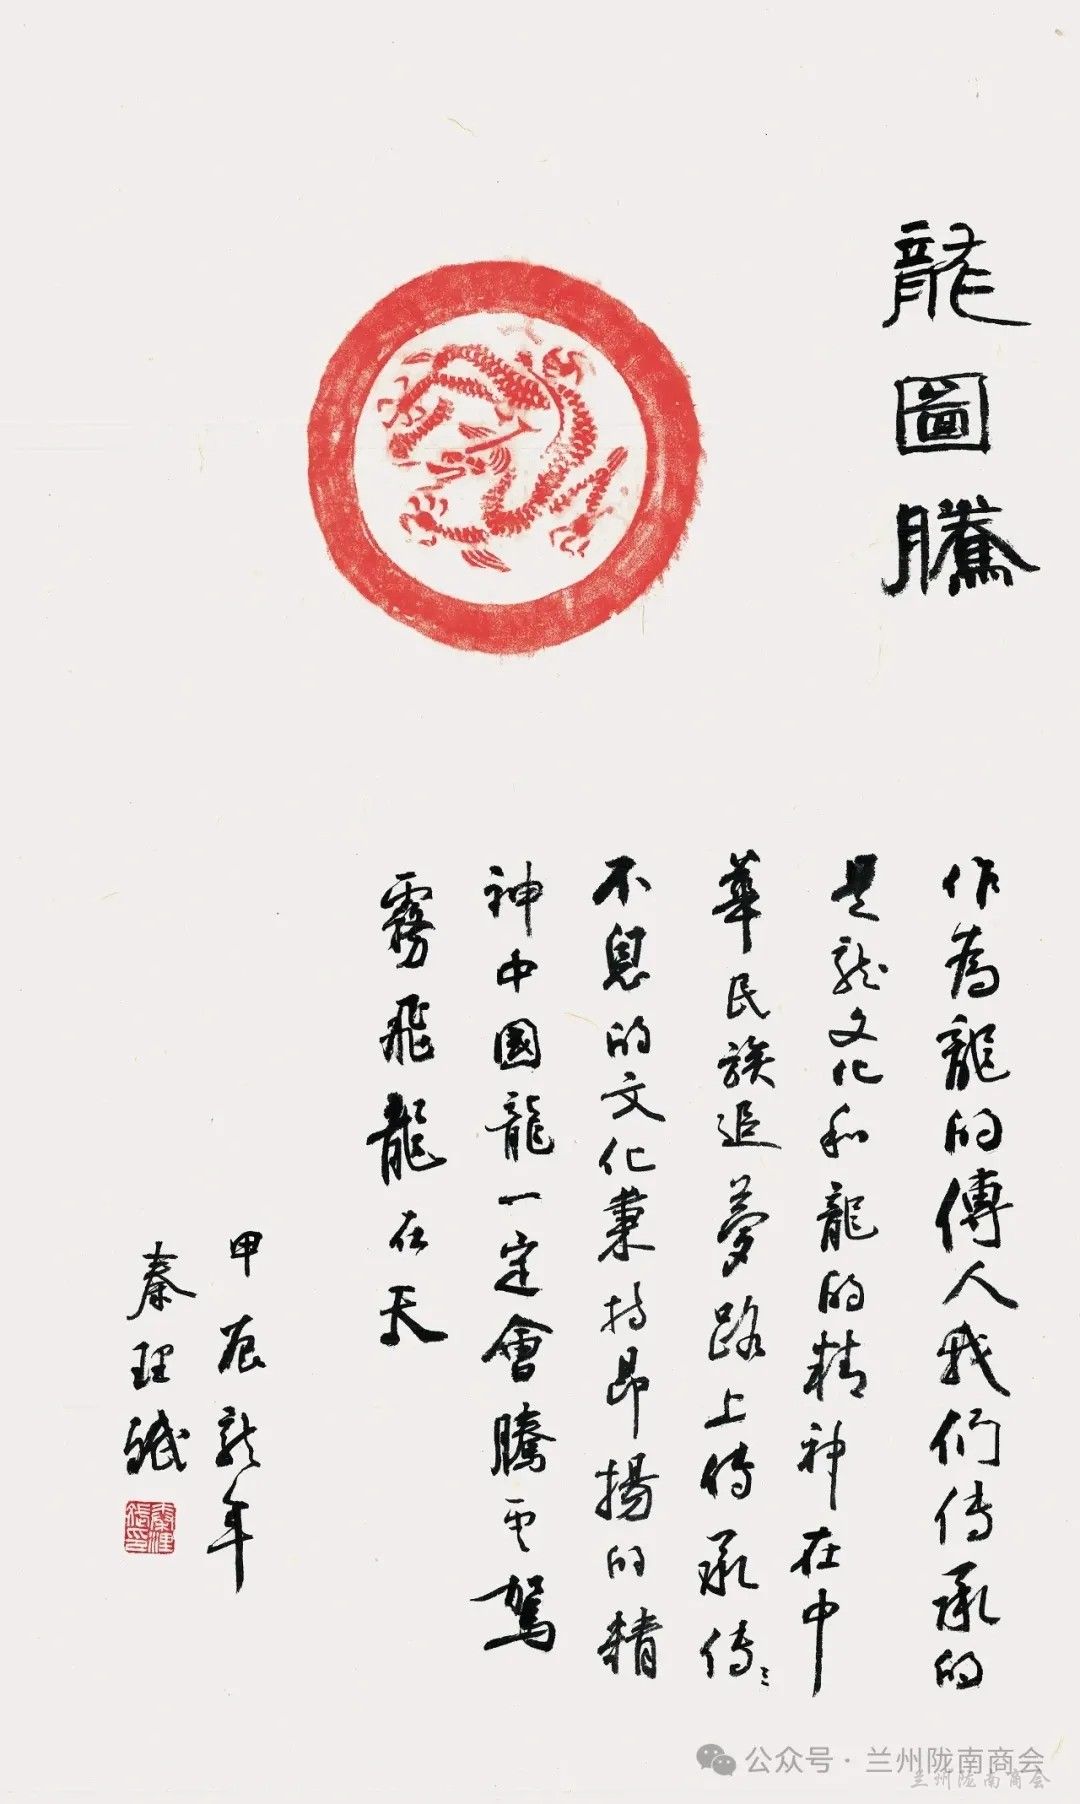 龍圖騰
作為龍的傳人我們传承的
是龙文化和龍的精神在中
華民族追夢路上传承传〻
不息的文化秉持昂揚的精
神中國龍一定會騰云駕
霧飛龍在天
甲辰龙年
秦理
公众号 · 兰州陇南商会
兰州陇南商会